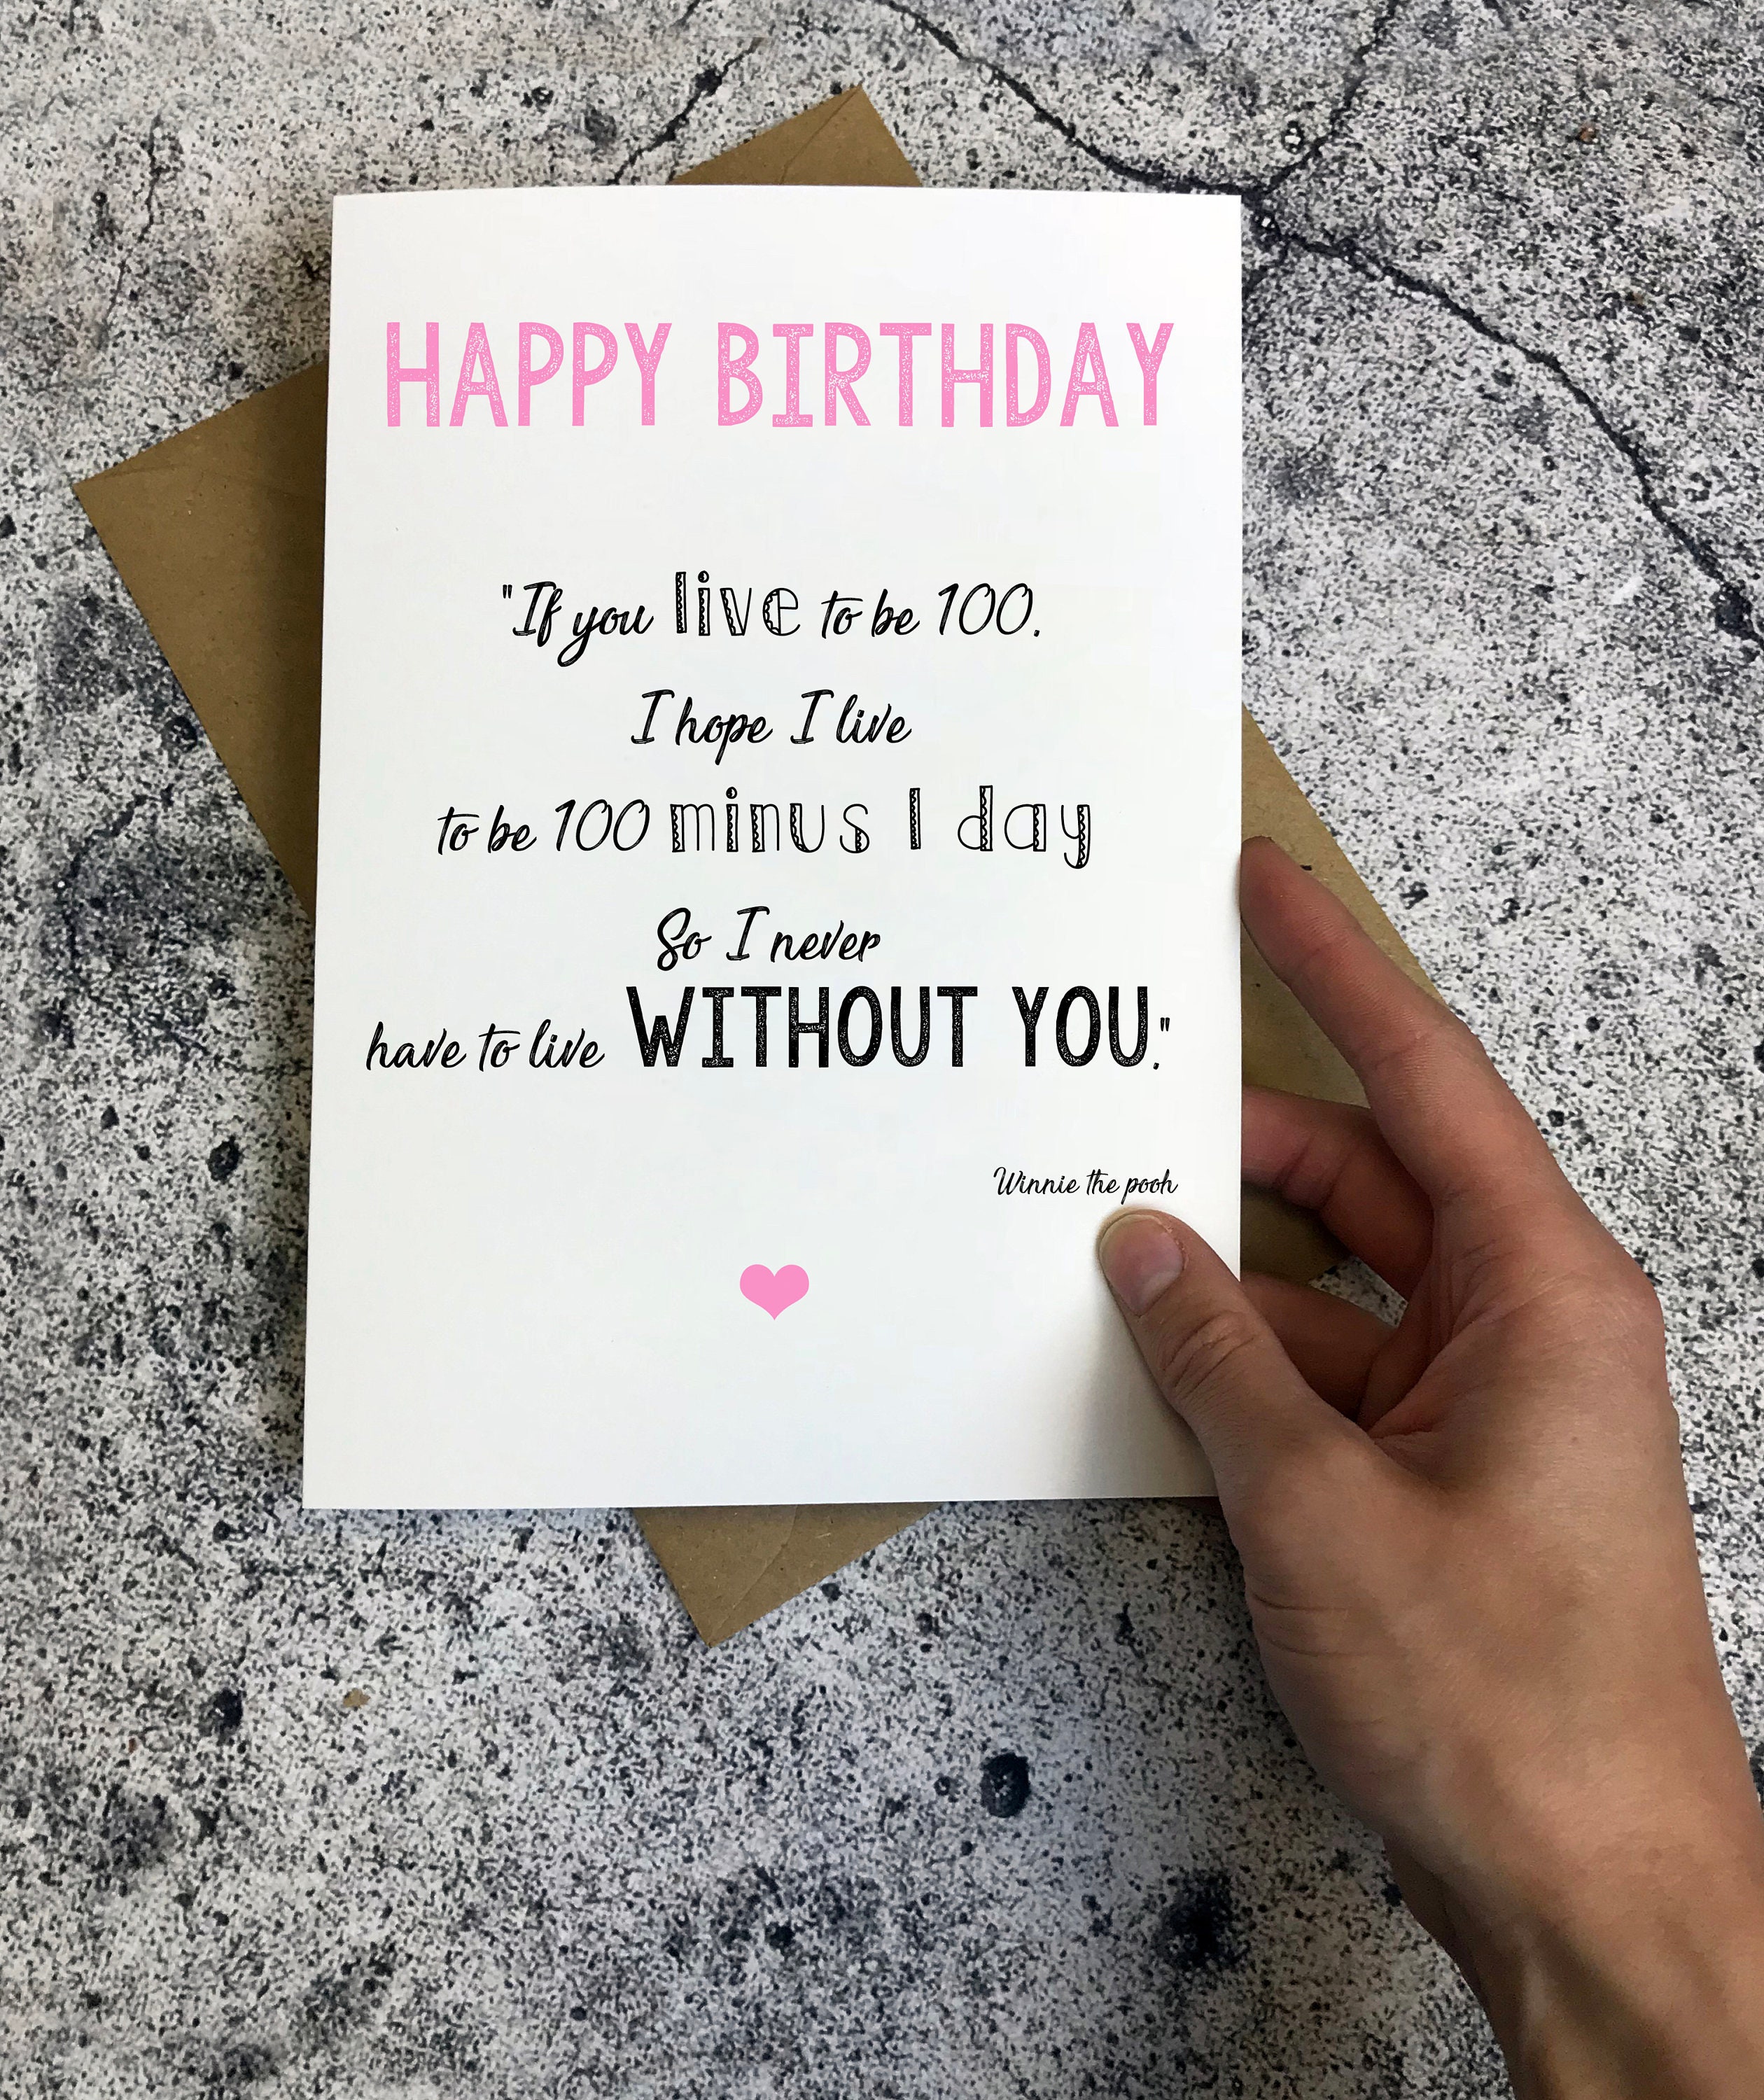 HAPPY BIRTHDAY
"If you live to be 100.
I hope I live
to be 100 minus 1 day
So I never
have to live WITHOUT YOU."
Winnie the pooh